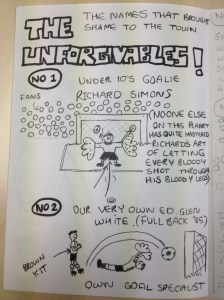 THE
THE NAMES THAT BROUGHT
SHAME TO THE TOWN
UNFORGIVABLES!
NO 1
UNDER 10'S GOALIE
FANS
RICHARD SIMONS
(NO ONE ELSE
ON THIS PLANET
HAS QUITE MASTERED
RICHARD'S ART
OF LETTING
EVERY BLOODY
SHOT THROUGH
HIS BLOODY LEGS)
NO 2
OUR VERY OWN ED. GLEN
WHITE. (FULL BACK '85)
BROWN
KIT
OWN GOAL SPECIALIST